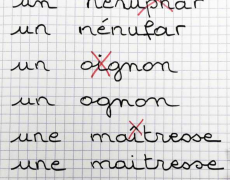 un nénuphar
un nénufar
un oignon
un ognon
une maîtresse
une maitresse